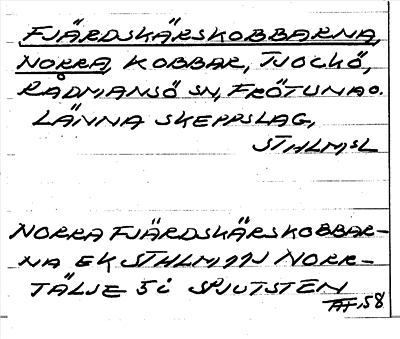 FJÄRDSKÄRSKOBBARNA,
NORRA, KOBBAR, TJOCKÖ,
RÅDMANSÖ SN, FRÖTUNA O.
LÄNNA SKEPPSLAG,
STHLMSL
NORRA FJÄRDSKÄRSKOBBAR-
NA EK STHLM NORR-
TÄLJE 5 i SPJUTSTEN
58